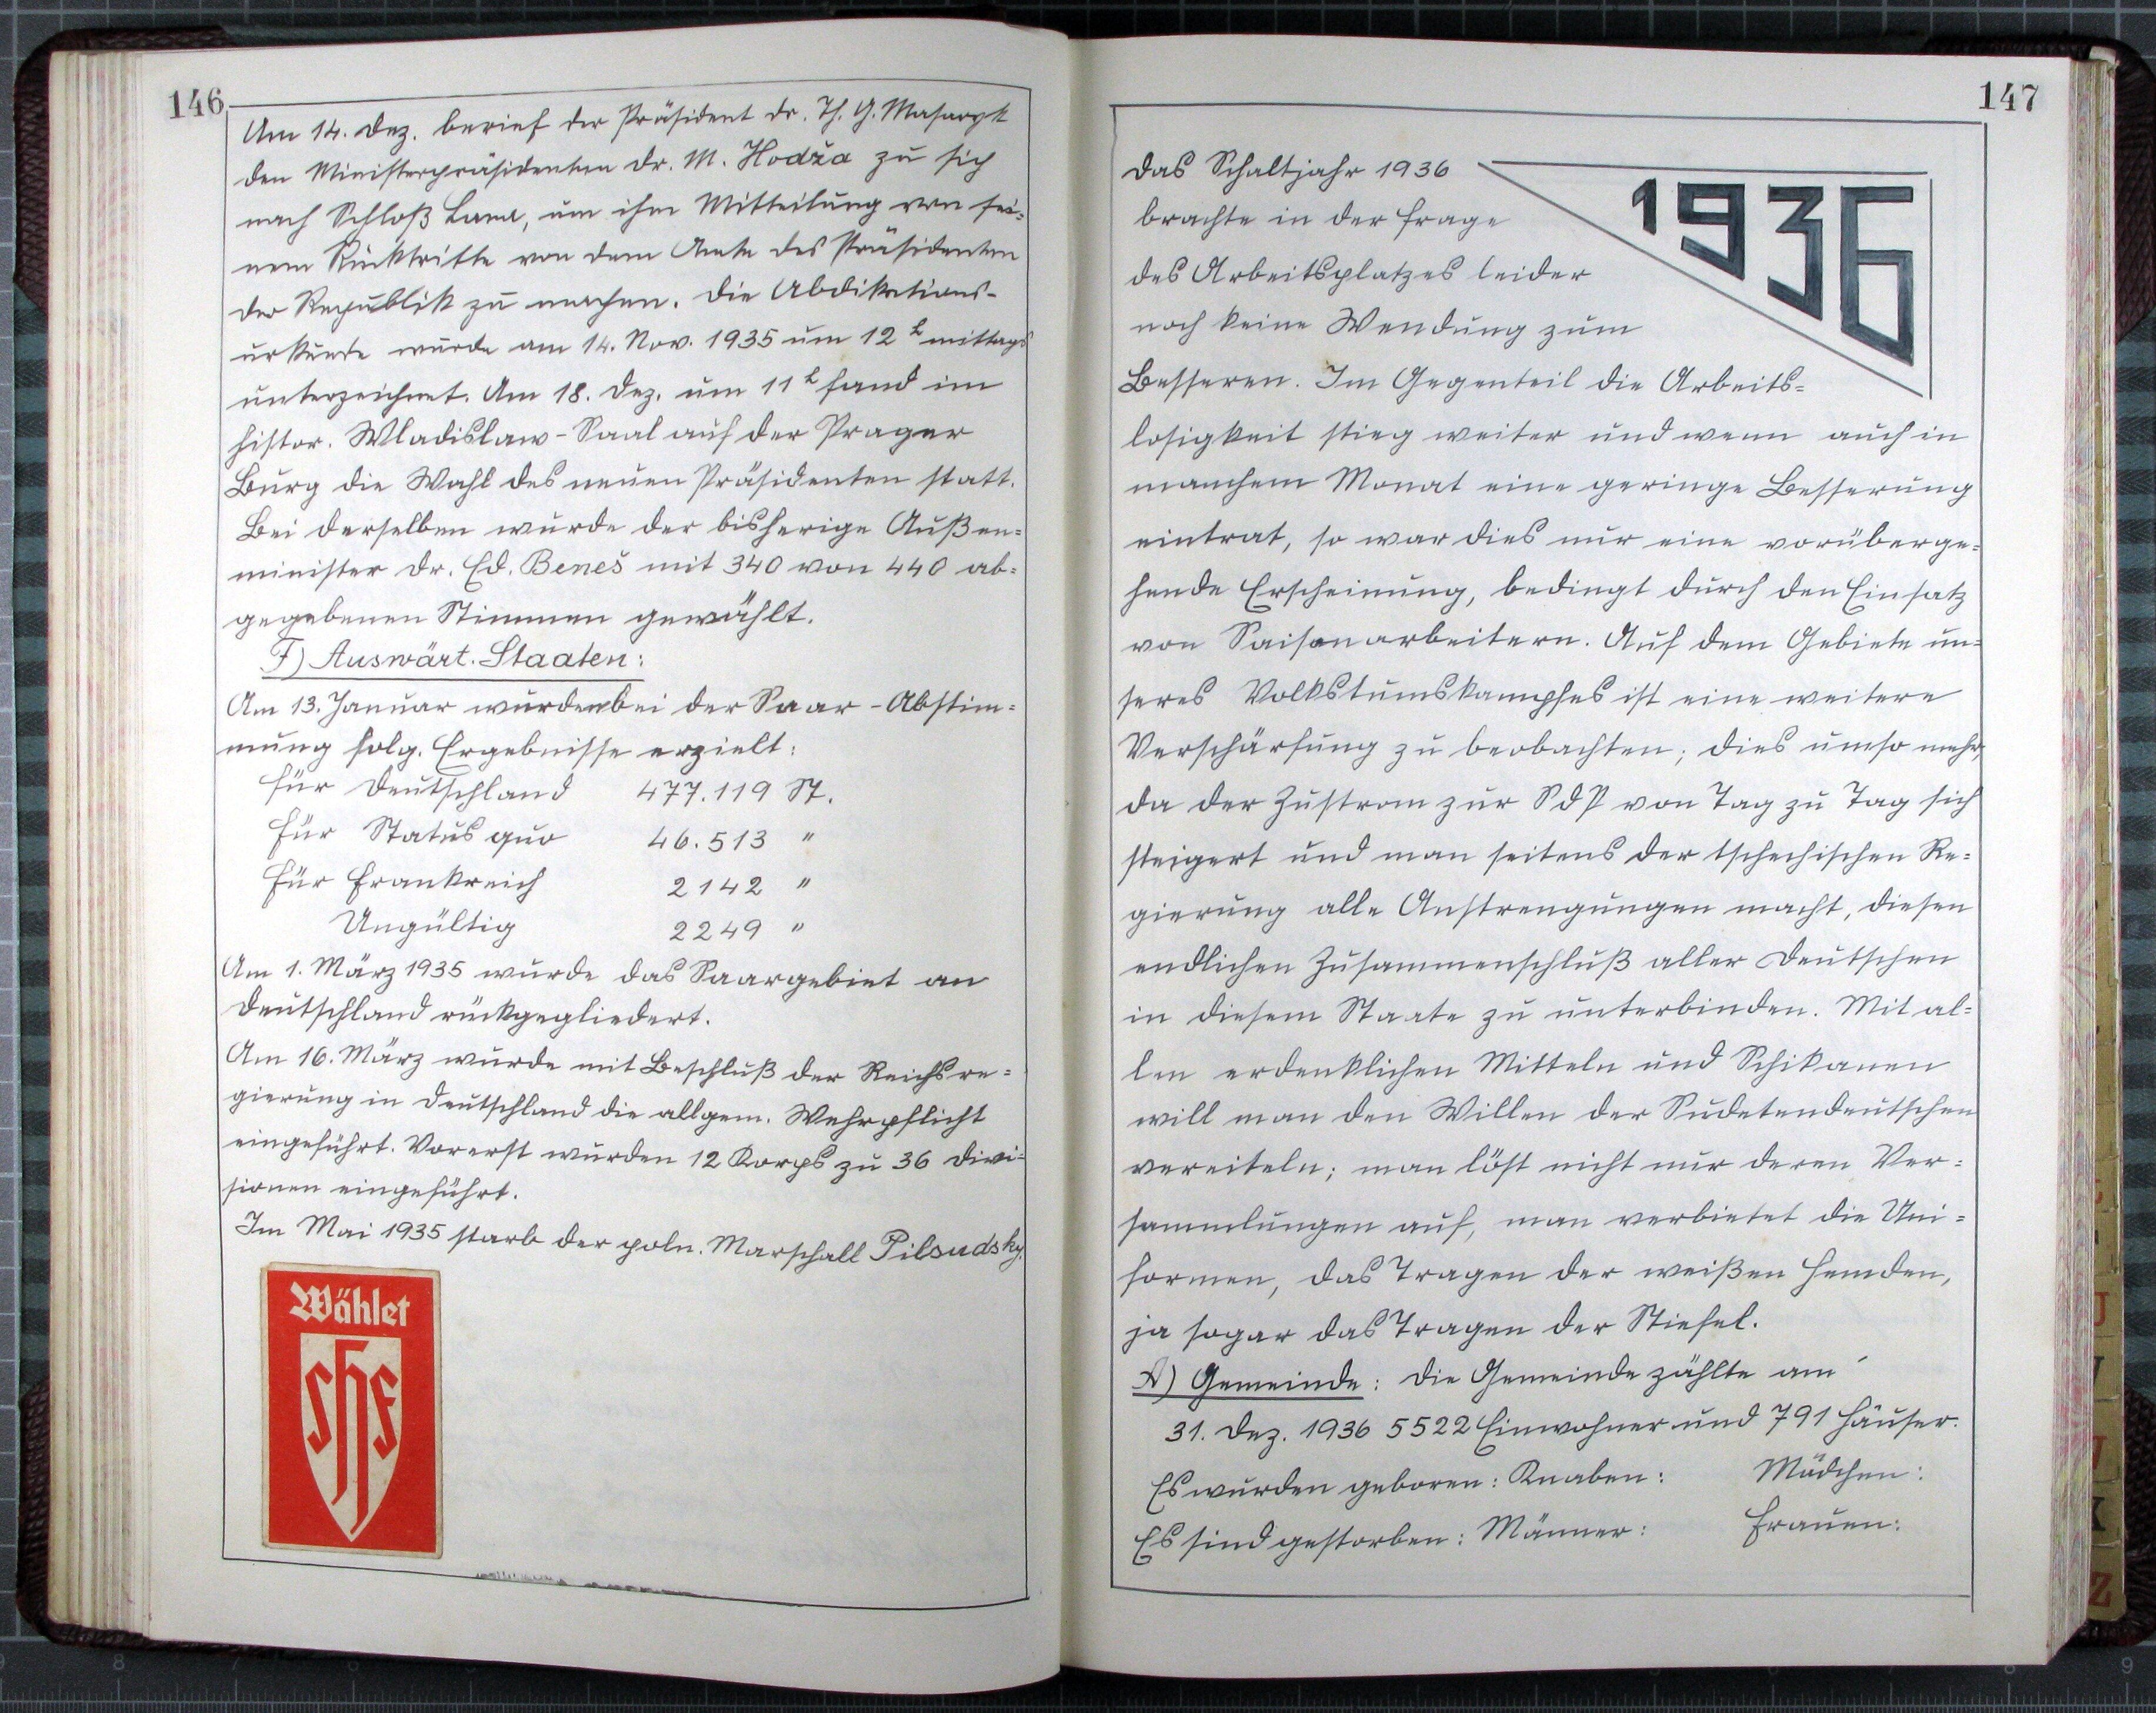 146
Am 14. Dez. berief der Präsident Dr. Th. G. Masaryk
den Ministerpräsidenten Dr. M. Hodža zu sich
nach Schloß Lana, um ihm Mitteilung von sei=
nem Rücktritte von dem Amte des Präsidenten
der Republik zu machen. Die Abdikations-
urkunde wurde am 14. Nov. 1935 um 12 h mittags
unterzeichnet. Am 18. Dez. um 11 h fand im
histor. Wladislaw-Saal auf der Prager
Burg die Wahl des neuen Präsidenten statt.
Bei derselben wurde der bisherige Außen=
minister Dr. Ed. Beneš mit 340 von 440 ab=
gegebenen Stimmen gewählt.
F) Auswärt. Staaten:
Am 13. Januar wurden bei der Saar-Abstim=
mung folg. Ergebnisse erzielt:
für Deutschland 477.119 St.
für Status quo 46.513 "
für Frankreich 2142 "
Ungültig 2249 "
Am 1. März 1935 wurde das Saargebiet an
Deutschland rückgegliedert.
Am 16. März wurde mit Beschluß der Reichsre=
gierung in Deutschland die allgem. Wehrpflicht
eingeführt. Vorerst wurden 12 Korps zu 36 Divi=
sionen eingeführt.
Im Mai 1935 starb der poln. Marschall Pilsudsky.
Wählet
SHF
147
1936
Das Schaltjahr 1936
brachte in der Frage
des Arbeitsplatzes leider
noch keine Wendung zum
Besseren. Im Gegenteil die Arbeits=
losigkeit stieg weiter und wenn auch in
manchem Monat eine geringe Besserung
eintrat, so war dies nur eine vorüberge=
hende Erscheinung, bedingt durch den Einsatz
von Saisonarbeitern. Auf dem Gebiete un=
seres Volkstumskampfes ist eine weitere
Verschärfung zu beobachten; dies umso mehr,
da der Zustrom zur SdP von Tag zu Tag sich
steigert und man seitens der tschechischen Re=
gierung alle Anstrengungen macht, diesen
endlichen Zusammenschluß aller Deutschen
in diesem Staate zu unterbinden. Mit al=
len erdenklichen Mitteln und Schikanen
will man den Willen der Sudetendeutschen
vereiteln; man löst nicht nur deren Ver=
sammlungen auf, man verbietet die Uni=
formen, das Tragen der weißen Hemden,
ja sogar das Tragen der Stiefel.
A) Gemeinde: Die Gemeinde zählte am
31. Dez. 1936 5522 Einwohner und 791 Häuser.
Es wurden geboren: Knaben: Mädchen:
Es sind gestorben: Männer: Frauen: